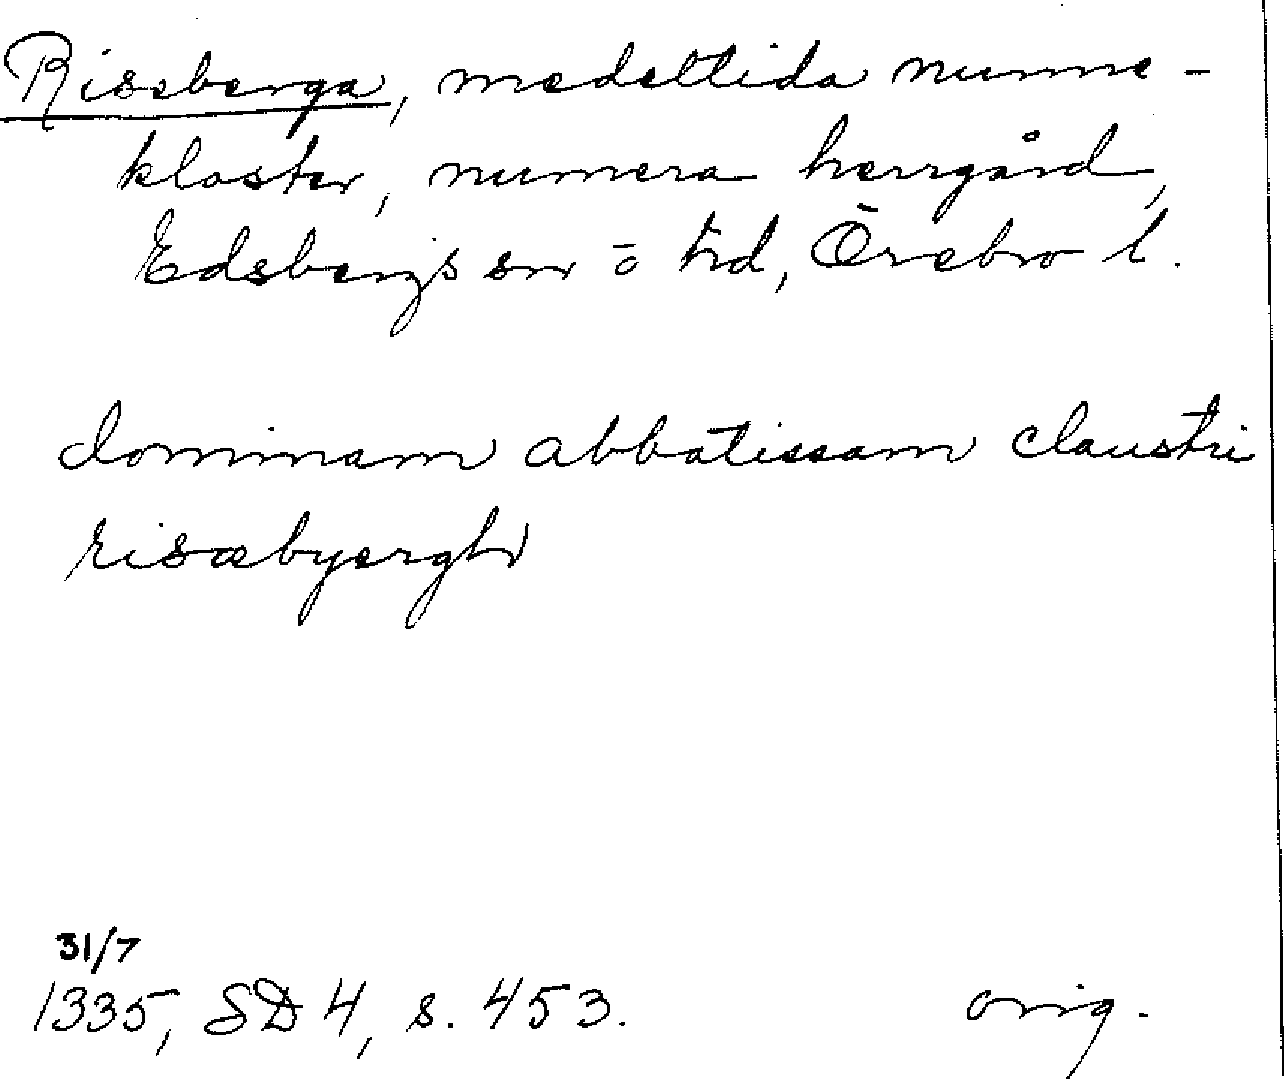 Riseberga, medeltida nunne-
kloster, numera herrgård,
Edsbergs sn o hd, Örebro l.
dominam abbatissam claustri
risæbyergh
31/7
1335, SD 4, s. 453. orig.